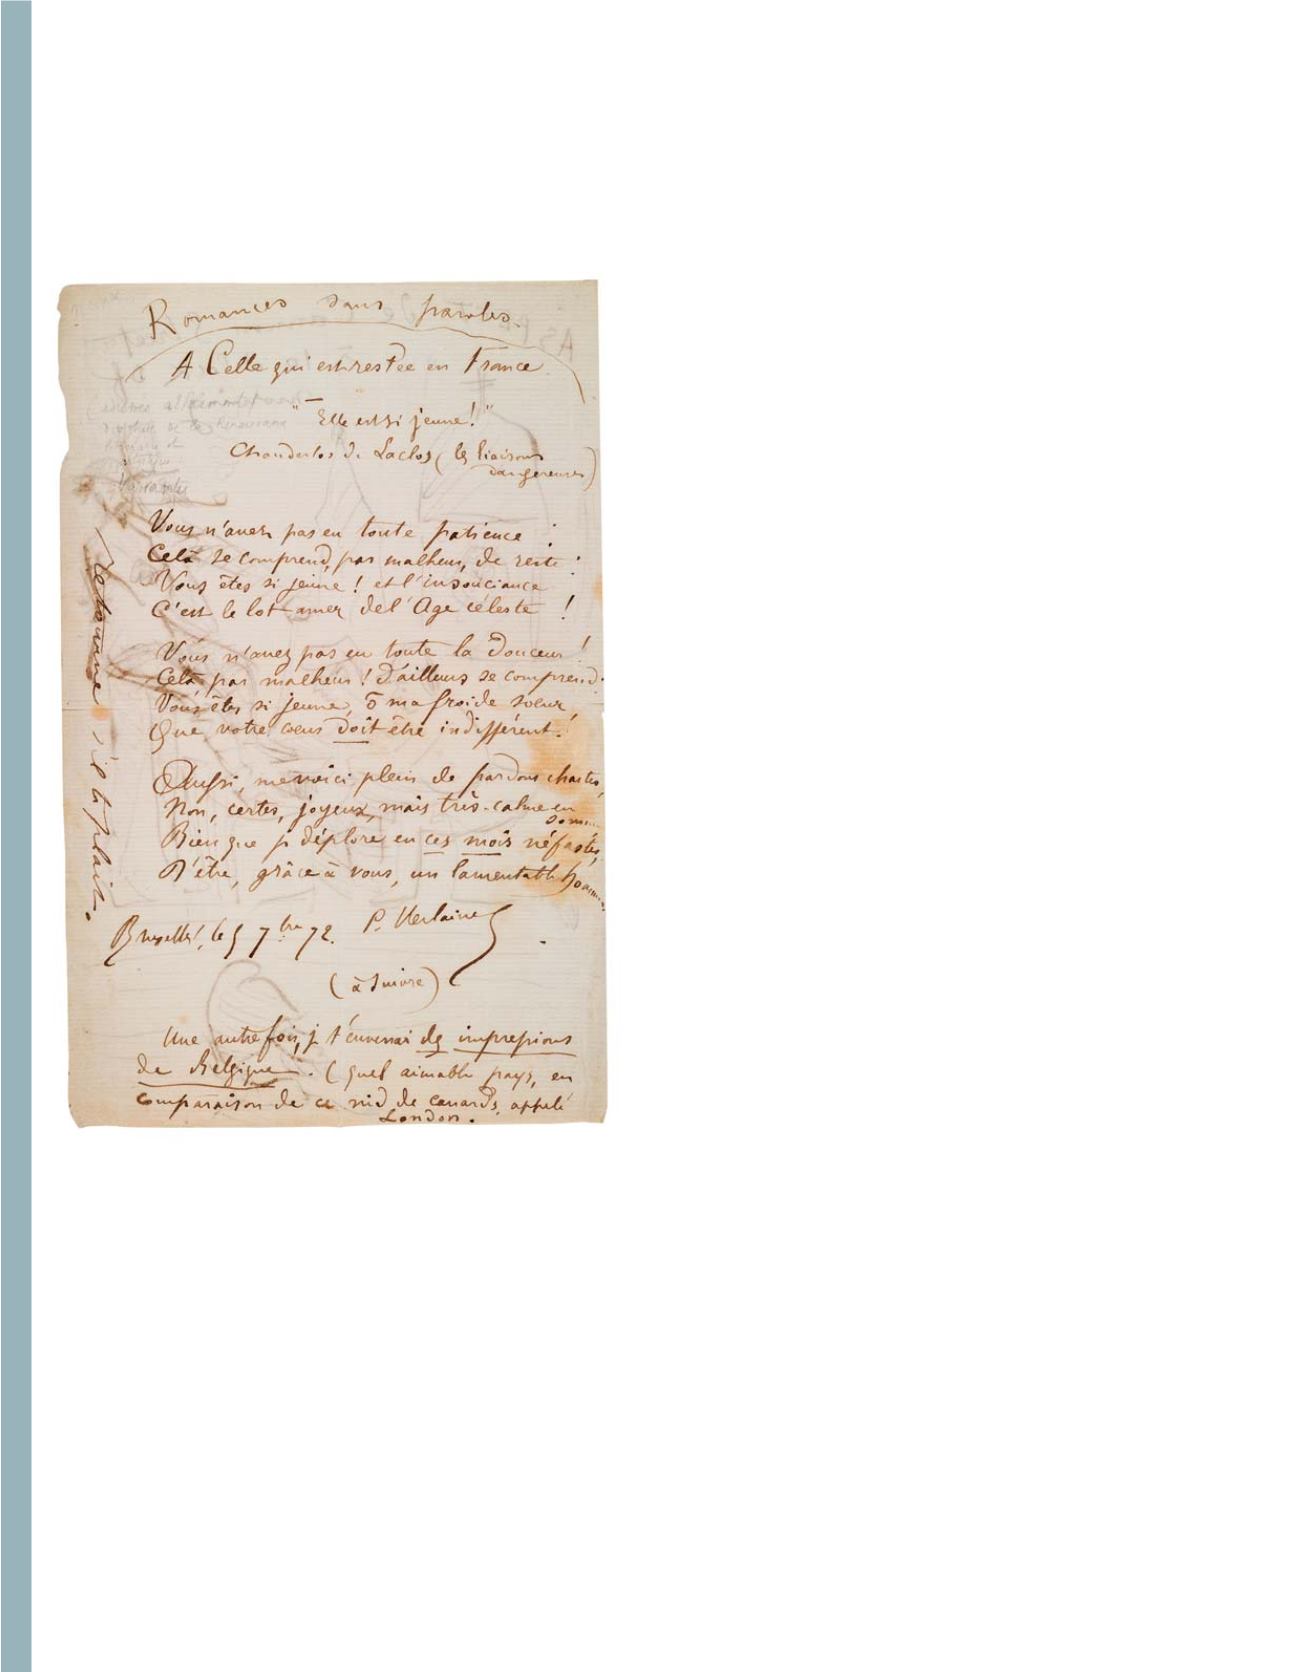 Romances sans paroles.
A Celle qui est restée en France
"Elle est si jeune!"
Choderlos de Laclos (les liaisons
dangereuses)
Vous n'avez pas eu toute patience :
Celà se comprend, par malheur, de reste :
Vous êtes si jeune ! et l'insouciance
C'est le lot amer de l'Age céleste !
Vous n'avez pas eu toute la douceur !
Celà par malheur ! d'ailleurs se comprend.
Vous êtes si jeune, ô ma froide soeur,
Que votre coeur doit être indifférent !
Aussi, me voici plein de pardons chastes,
Non, certes, joyeux, mais très-calme en
somme
Bien que je déplore en ces mois néfastes,
D'être, grâce à vous, un lamentable homme
Bruxelles, le 5 7bre 72. P. Verlaine
(à suivre)
Une autre fois, je t'enverrai des impressions
de Belgique. (quel aimable pays, en
comparaison de ce nid de canards, appelé
London.
Retourne s'il te plait.